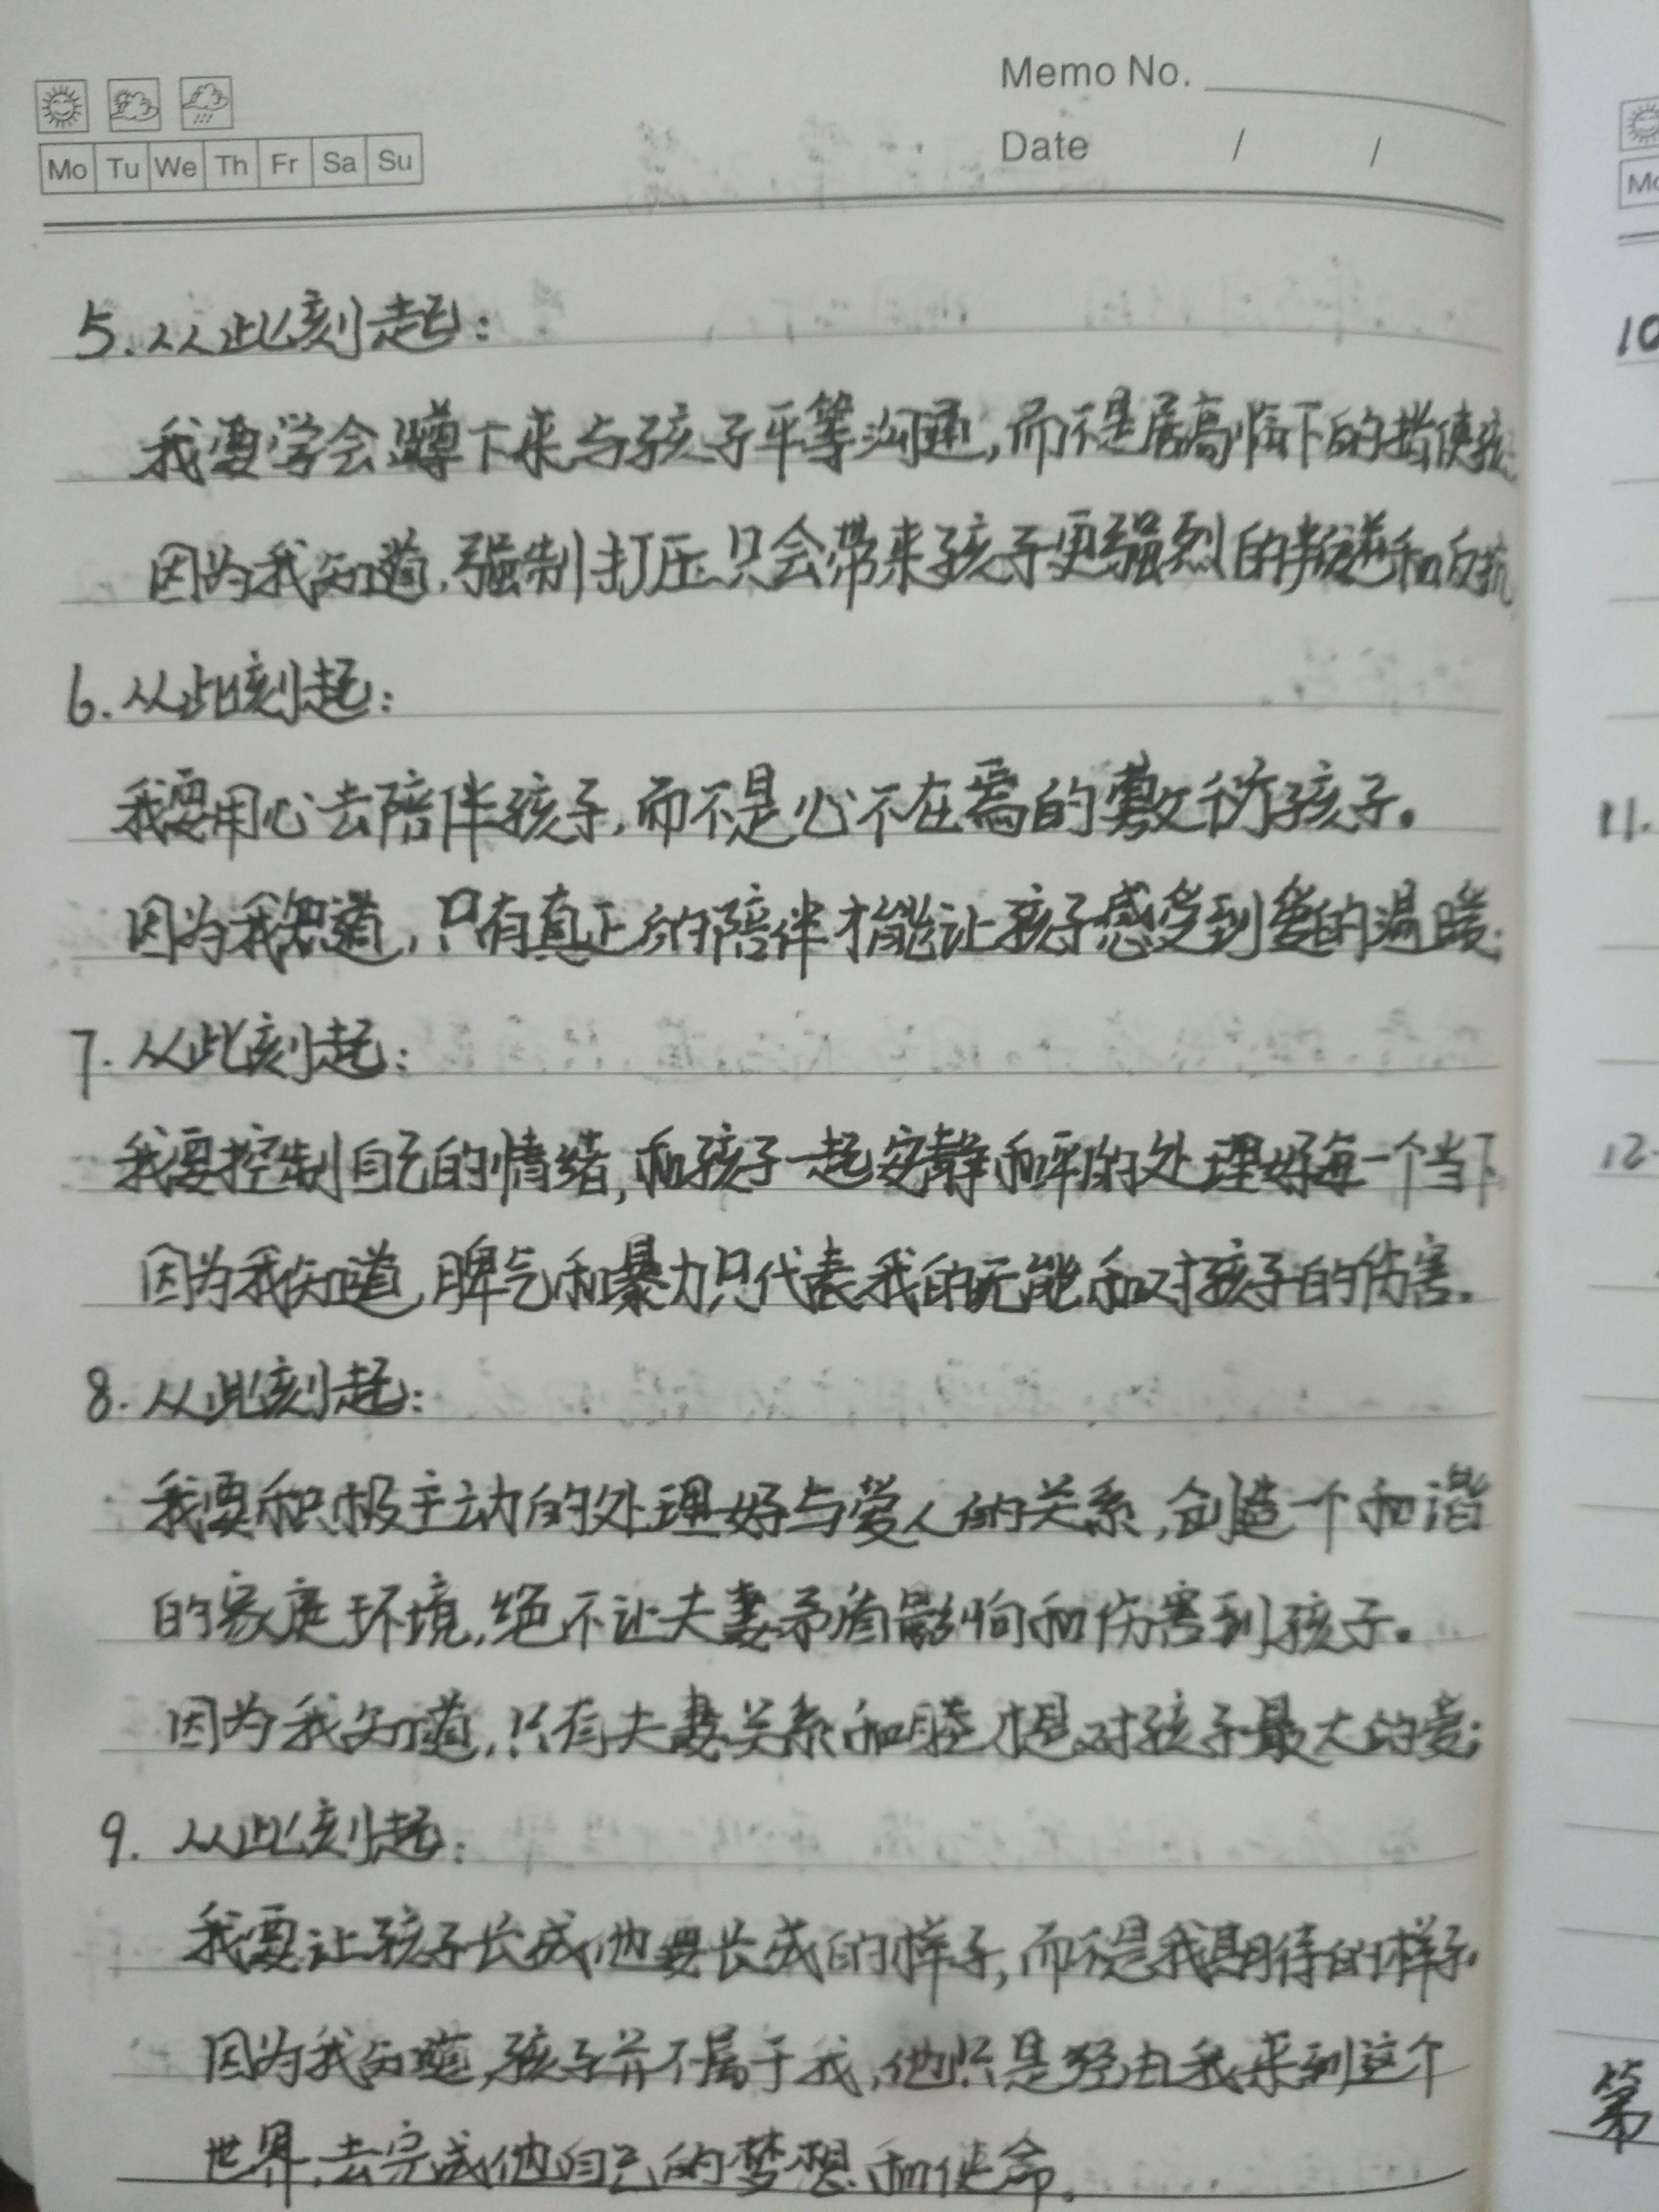 Memo No.
Mo Tu We Th Fr Sa Su
Date / /
5.从此刻起：
我要学会蹲下来与孩子平等沟通,而不是居高临下的指使孩
因为我知道,强制打压只会带来孩子更强烈的叛逆和反抗
6.从此刻起：
我要用心去陪伴孩子,而不是心不在焉的敷衍孩子。
因为我知道,只有真正的陪伴才能让孩子感受到爱的温暖.
7.从此刻起：
我要控制自己的情绪,和孩子一起安静和平的处理好每一个当下
因为我知道,脾气和暴力只代表我的无能和对孩子的伤害。
8.从此刻起：
我要积极主动的处理好与爱人的关系,创造一个和谐
的家庭环境,绝不让夫妻矛盾影响和伤害到孩子。
因为我知道,只有夫妻关系和睦才是对孩子最大的爱;
9.从此刻起：
我要让孩子长成他要长成的样子,而不是我期待的样子.
因为我知道,孩子并不属于我,他只是经由我来到这个
世界,去完成他自己的梦想和使命。
Mo
10
11.
12.
第